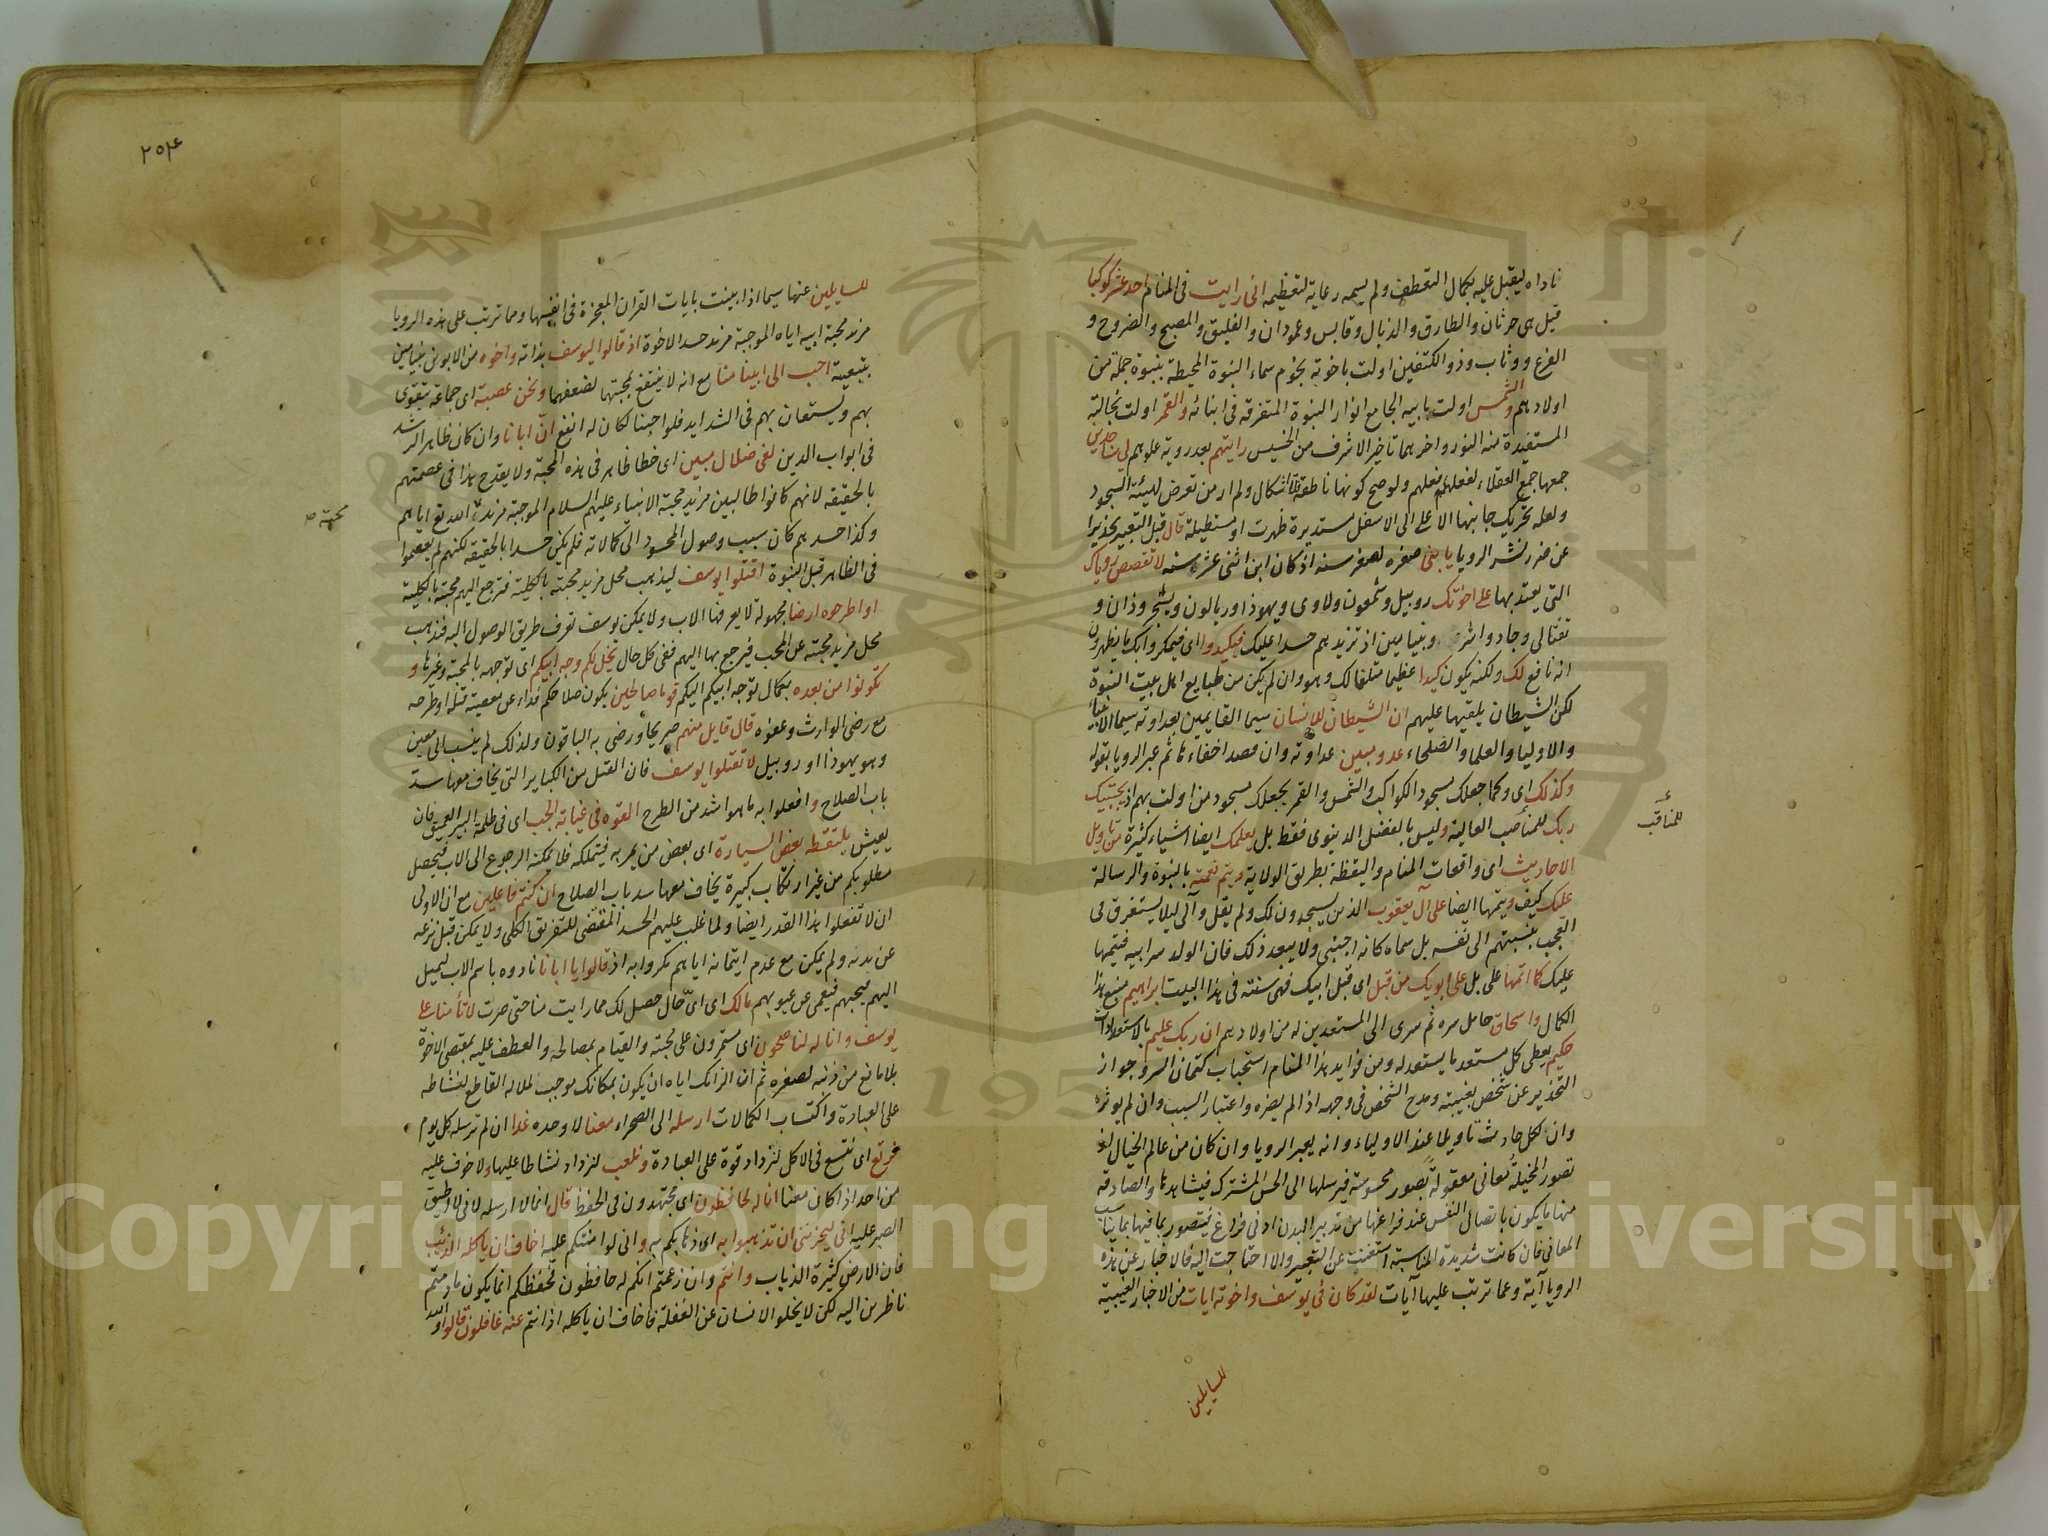 ناداه ليقبل عليه بكمال التعطف ولم يسمه رعاية لتعظيمه انى رايت فى المنام احد عشر كوكبا
قيل هى جرثان والطارق والذبال وقابس وعمودان والفليق والمصبح والضروح و
الفرغ ووثاب وذو الكتفين اولت باخوته نجوم سماء النبوة المحيطة بنبوة جملة من
اولادهم والشمس اولت بابيه الجامع انوار النبوة المتفرقة فى ابنائه والقمر اولت بخالته
المستفيدة منه النور واخرهما تاخير الاشرف من الخسيس رايتهم بعد رؤية علوهم لى ساجدين
جمعها جمع العقلاء لفعلهم فعلهم ولوضح كونها ناطقة فلا اشكال ولم ار من تعرض لهيئة السجود
ولعله تحريك جانبها الاعلى الى الاسفل مستديرة ظهرت او مستطيلة قال قبل التعبير تحذيرا
عن ضرر نشر الرويا يا بنى صغره لصغر سنه اذ كان ابن اثنى عشر سنه لا تقصص روياك
التى يعتد بها على اخوتك روبيل وشمعون ولاوى ويهوذا وربالون ويشجر ودان و
تفتالى وجاد واشر وبنيامين اذ تزيدهم حسدا عليك فيكيدوا اى فيمكروا بك ما يظهرون
انه نافع لك ولكنه يكون كيدا عظيما متلفا لك وهو وان لم يكن من طبايع اهل بيت النبوة
لكن الشيطان يلقيها عليهم ان الشيطان للانسان سيما القايمين بعداوته سيما الانبياء
والاوليا والعلما والصلحاء عدو مبين عداوته وان قصد اخفاءها ثم عبر الرويا بقوله
وكذلك اى وكما جعلك مسجود الكواكب والشمس والقمر يجعلك مسجود من اولت بهم اذ يجتبيك
ربك للمناصب العالية وليس بالفضل الدنيوى فقط بل يعلمك ايضا اشياء كثيرة من تاويل
الاحاديث اى واقعات المنام واليقظة بطريق الولاية ويتم نعمته بالنبوة والرسالة
عليك كيف ويتمها ايضا على آل يعقوب الذين يسجدون لك ولم يقل وآلى ليلا يستغرق فى
التعجب بنسبتهم الى نفسه بل سماه كانه اجنبى ولا يبعد ذلك فان الولد سر ابيه فيتمها
عليك كما اتمها على بل على ابويك من قبل اى قبل ابيك فهى سنته فى هذا البيت ابراهيم منبع هذا
الكمال واسحاق حامل سره ثم سرى الى المستعدين له من اولادهم ان ربك عليم بالاستعدادات
حكيم يعطى كل مستعد ما يستعد له ومن فوايد هذا المقام استحباب كتمان السر وجواز
التحذير عن شخص بغيبته ومدح الشخص فى وجهه اذا لم يضره واعتبار السبب وان لم يوثره
وان لكل حادث تاويلا عند الاولياء وانه يعبر الرويا وان كان من عالم الخيال لانه
تصور المخيلة معانى معقولة بصور محسوسة فيرسلها الى الحس المشترك فيشاهدها والصادقة
منها ما يكون باتصال النفس عند فراغها من تدبير البدن ادنى فراغ فيتصور بما فيها بما يناسب
المعانى فان كانت شديدة المناسبة استغنت عن التعبير والا احتاجت اليه فالاخبار عن هذه
الرويا آية وعما ترتب عليها آيات لقد كان فى يوسف واخوته ايات من الاخبار الغيبية
للسايلين
للمناقب
٢٥٤
للسايلين عنها سيما اذا بينت بايات القران المعجزة فى انفسها ومما ترتب على هذه الرويا
مزيد محبة ابيه اياه الموجبة مزيد حسد الاخوة اذ قالوا ليوسف بذاته واخوه من الابوين بنيامين
بتبعيته احب الى ابينا منا مع انه لا ينتفع بمحبتهما لضعفهما ونحن عصبة اى جماعة يتقوى
بهم ويستعان بهم فى الشدايد فلو احبنا لكان له انفع ان ابانا وان كان ظاهر الرشد
فى ابواب الدين لفى ضلال مبين اى خطا ظاهر فى هذه المحبة ولا يقدح هذا فى عصمتهم
بالحقيقه لانهم كانوا طالبين مزيد محبة الانبياء عليهم السلام الموجبة مزيد الله تع اياهم
وكذا حسدهم كان سبب وصول المحسود الى كمالاته فلم يكن حسدا بالحقيقه لكنهم لم يعصموا
فى الظاهر قبل النبوة اقتلوا يوسف ليذهب محل مزيد محبته بالكلية فترجع اليهم محبته بالكلية
او اطرحوه ارضا مجهولة لا يعرفها الاب ولا يمكن يوسف تعرف طريق الوصول اليه فيذهب
محل مزيد محبته عن المحب فيرجع بها اليهم ففى كل حال يخل لكم وجه ابيكم اى توجهه بالمحبة وغيرها و
تكونوا من بعده بكمال توجه ابيكم اليكم قوما صالحين يكون صلاحكم فداء عن معصية قتله او طرحه
مع رضى الوارث وعفوه قال قايل منهم صريحا ورضى به الباقون ولذلك لم ينسب الى معين
وهو يهوذا او روبيل لا تقتلوا يوسف فان القتل من الكباير التى يخاف معها سد
باب الصلاح وافعلوا به ما هو اشد من الطرح القوه فى غيابة الجب اى فى ظلمة البير العميق فان
يعيش يلتقطه بعض السيارة اى بعض من يمر به فيتملكه فلا يمكنه الرجوع الى الاب فيحصل
مطلوبكم من غير ارتكاب كبيرة يخاف معها سد باب الصلاح ان كنتم فاعلين مع ان الاولى
ان لا تفعلوا هذا القدر ايضا ولما غلب عليهم الحسد المقتضى للتفريق الكلى ولا يمكن قبل نزعه
عن يديه ولم يمكن مع عدم ايتمانه اياهم مكروا به اذ قالوا يا ابانا نادوه باسم الاب ليميل
اليهم فيحبهم فيعمى عن عيوبهم مالك اى اى حال حصل لك مما رايت منا حتى صرت لا تأمنا على
يوسف وانا له لناصحون اى مستمرون على محبته والقيام بمصالحه والعطف عليه بمقتضى الاخوة
بلا مانع من ذنبه لصغره ثم ان الزامك اياه ان يكون بمكانك موجب لملاله القاطع لنشاطه
على العبادة واكتساب الكمالات ارسله الى الصحراء معنا لا وحده غدا ان لم ترسله كل يوم
نرتع اى نتسع فى الاكل لنزداد قوة على العبادة ونلعب لنزداد نشاطا عليها ولا خوف عليه
من احد اذا كان معنا انا له لحافظون اى مجتهدون فى الحفظ قال انما لا ارسله لانى لا اطيق
الصبر عليه انى ليحزننى ان تذهبوا به اى ذهابكم به وانى لو امنتكم عليه اخاف ان ياكله الذئب
فان الارض كثيرة الذياب وانتم وان زعمتم انكم له حافظون فحفظكم انما يكون ما دمتم
ناظرين اليه لكن لا يخلو الانسان عن الغفلة فاخاف ان ياكله اذ انتم عنه غافلون قالوا والله
محبة صح
Copyright © King Saud University
1957